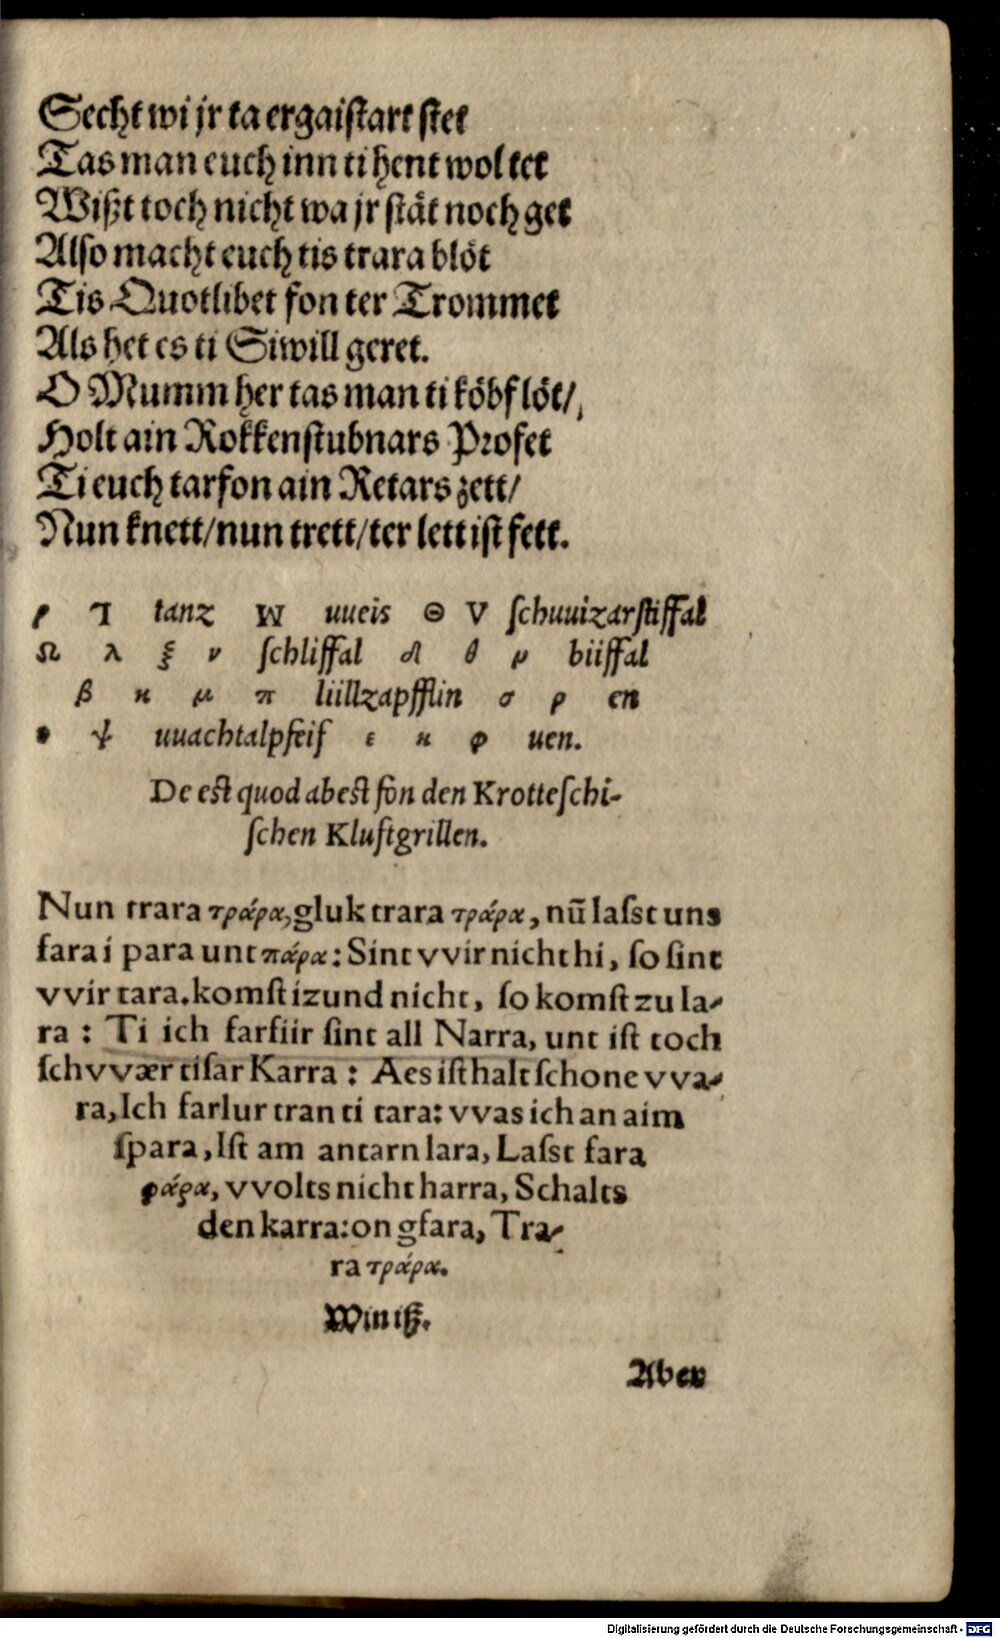 Secht wi jr ta ergaiſtart ſtet
Tas man euch inn ti hent wol tet
Wißt toch nicht wa jr ſtät noch get
Alſo macht euch tis trara blöt
Tis Quotlibet fon ter Trommet
Als het es ti Siwill geret.
O Mumm her tas man ti köbf löt/
Holt ain Rokkenſtubnars Profet
Ti euch tarfon ain Retars zett/
Nun knett/nun trett/ter lett iſt fett.
tanz W uueis Θ V ſchuuizarſtiffal
Ω λ ξ ν ſchliffal θ μ büffal
β κ μ π lüllzapfflin σ ρ en
ψ uuachtalpfeif ε κ φ uen.
De eſt quod abeſt fon den Krotteſchi-
ſchen Kluftgrillen.
Nun trara τράρα, gluk trara τράρα, nū laſst uns
farai para unt πάρα: Sint vvir nicht hi, ſo ſint
vvir tara. komſt izund nicht, ſo komſt zu la-
ra: Ti ich farfiir ſint all Narra, unt iſt toch
ſchvvær tiſar Karra: Aes iſt halt ſchone vva-
ra, Ich farlur tran ti tara: vvas ich an aim
ſpara, Iſt am antarn lara, Laſst fara
φάρα, vvolts nicht harra, Schalts
den karra: on gfara, Tra-
ra τράρα.
Win iſt.
Aber
Digitalisierung gefördert durch die Deutsche Forschungsgemeinschaft - DFG